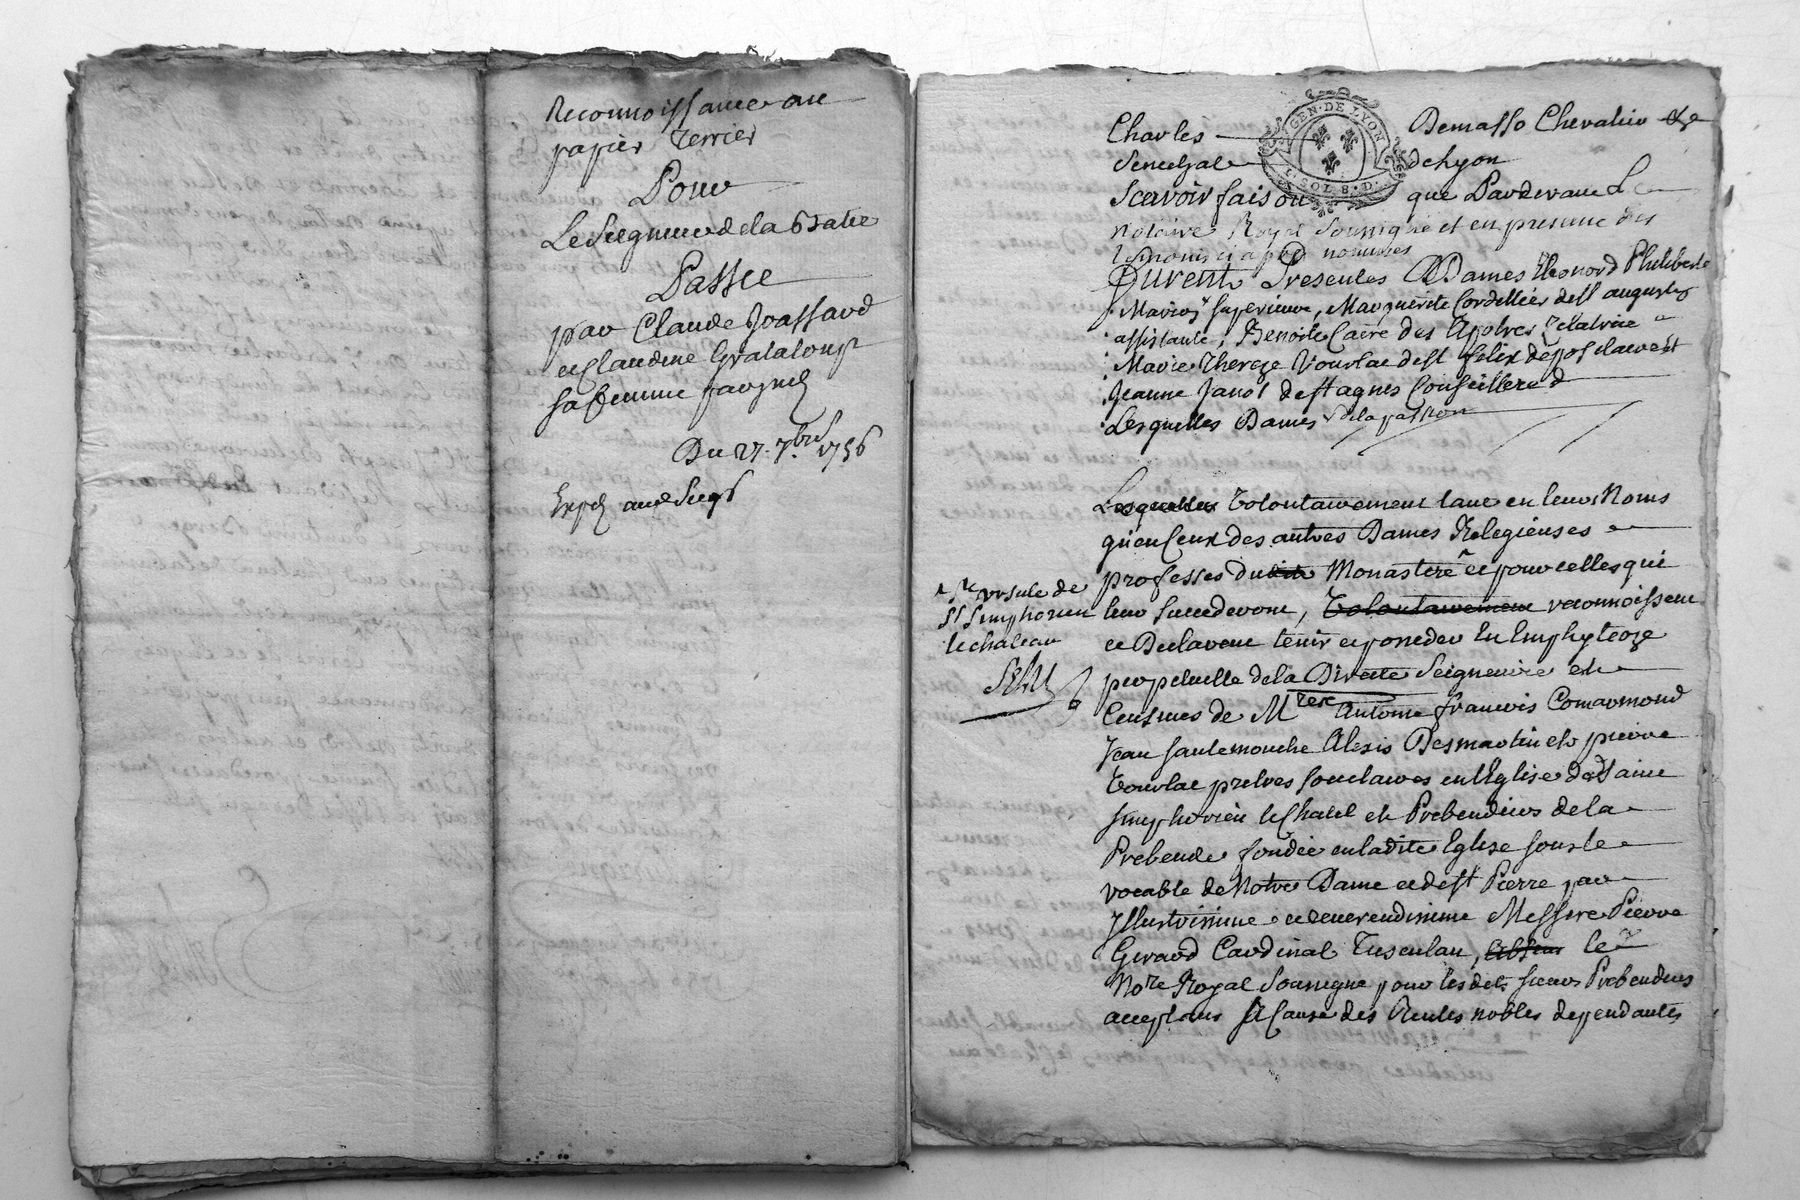 Reconnoissance au
papier Terrier
Pour
Le Seigneur de la Batie
Passée
par Claude Joassard
et Claudine Grataloup
sa femme
Du 27 7bre 1756
Exped
Charles Demasso Chevalier &c
Senechal de Lyon
Scavoir faisons que Pardevant Le
notaire Royal Soussigné et en presence des
temoins ci après nommés
GEN. DE LYON
SOL 8. D.
furent Presentes Dames Eleonord Philiberte
Mariou superieure, Marguerite Cordellier de St augustin
assistante, Benoite Caire des Apotres Zelatrice
Marie Thereze Tourlac de St felix depositaire et
Jeanne Janot de St agnes Conseillere
Lesquelles Dames de la passion
Lesquelles Volontairement tant en leurs Noms
qu'en ceux des autres Dames Religieuses
professes dudit Monastere et pour celles qui
leur succederont, Volontairement reconnoissent
et Declarent tenir et posseder En Emphyteoze
perpetuelle de la Directe Seigneurie et
Censives de Mres Antoine francois Comarmond
Jean fautemouche Alexis Desmartin et pierre
Tourlac pretres societaires en l'Eglise de Saint
simphorien le Chatel et Prebendiers de la
Prebende fondée en ladite Eglise sous le
vocable de Notre Dame et de St Pierre par
Illustrissime et reverendissime Messire Pierre
Girard Cardinal Tusculan, absens le
Nore Royal Soussigné pour lesdits sieurs Prebendiers
acceptant A Cause des Rentes nobles dependantes
Ste Ursule de
St Simphorien
le chateau